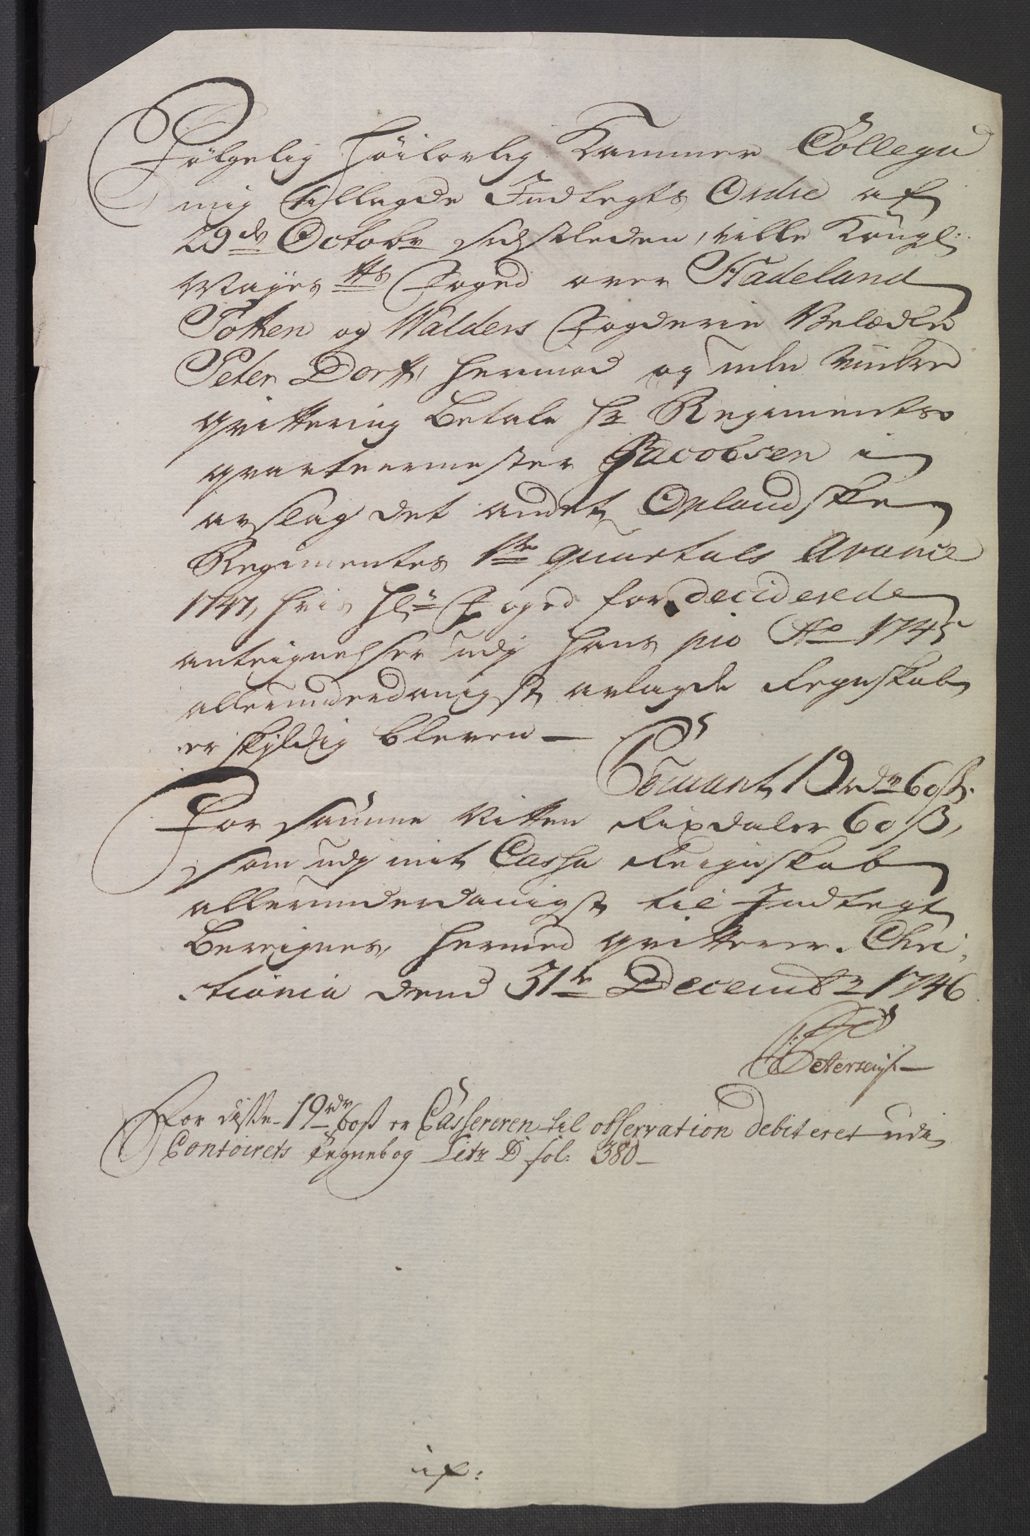 Følgelig Høilovlig Kammer Collegii
mig tillagde Indtegts Ordre af
29de Octobr sidstleden, ville Kongl:
Mayes tts Foged over Hadeland
Totten og Walders Fogderie Velædle
Peter Dorff, hermed og under
qvittering betale Hr Regiments
qvarteermester Jacobsen i
avslag det andet Oplandske
Regimentes 1te quartals Avance
1747, hvis Hr Foged for deciderede
antegnelser udj hans pro Ao 1745
allerunderdanigst avlagde Regnskab
er skyldig bleven —
Courant 19 rdr 60 ß.
For samme Nitten Rixdaler 60 ß,
som udj mit Cassa Reignskab
allerunderdanigst til Indtegt
Bereignes, hermed qvitterer. Chri:
stiania dend 31te Decembr 1746
Petersen
For disse 19 rdr 60 ß er Casserern til observation debiteret udi
Contoirets Regnebog Litr D fol: 380 —